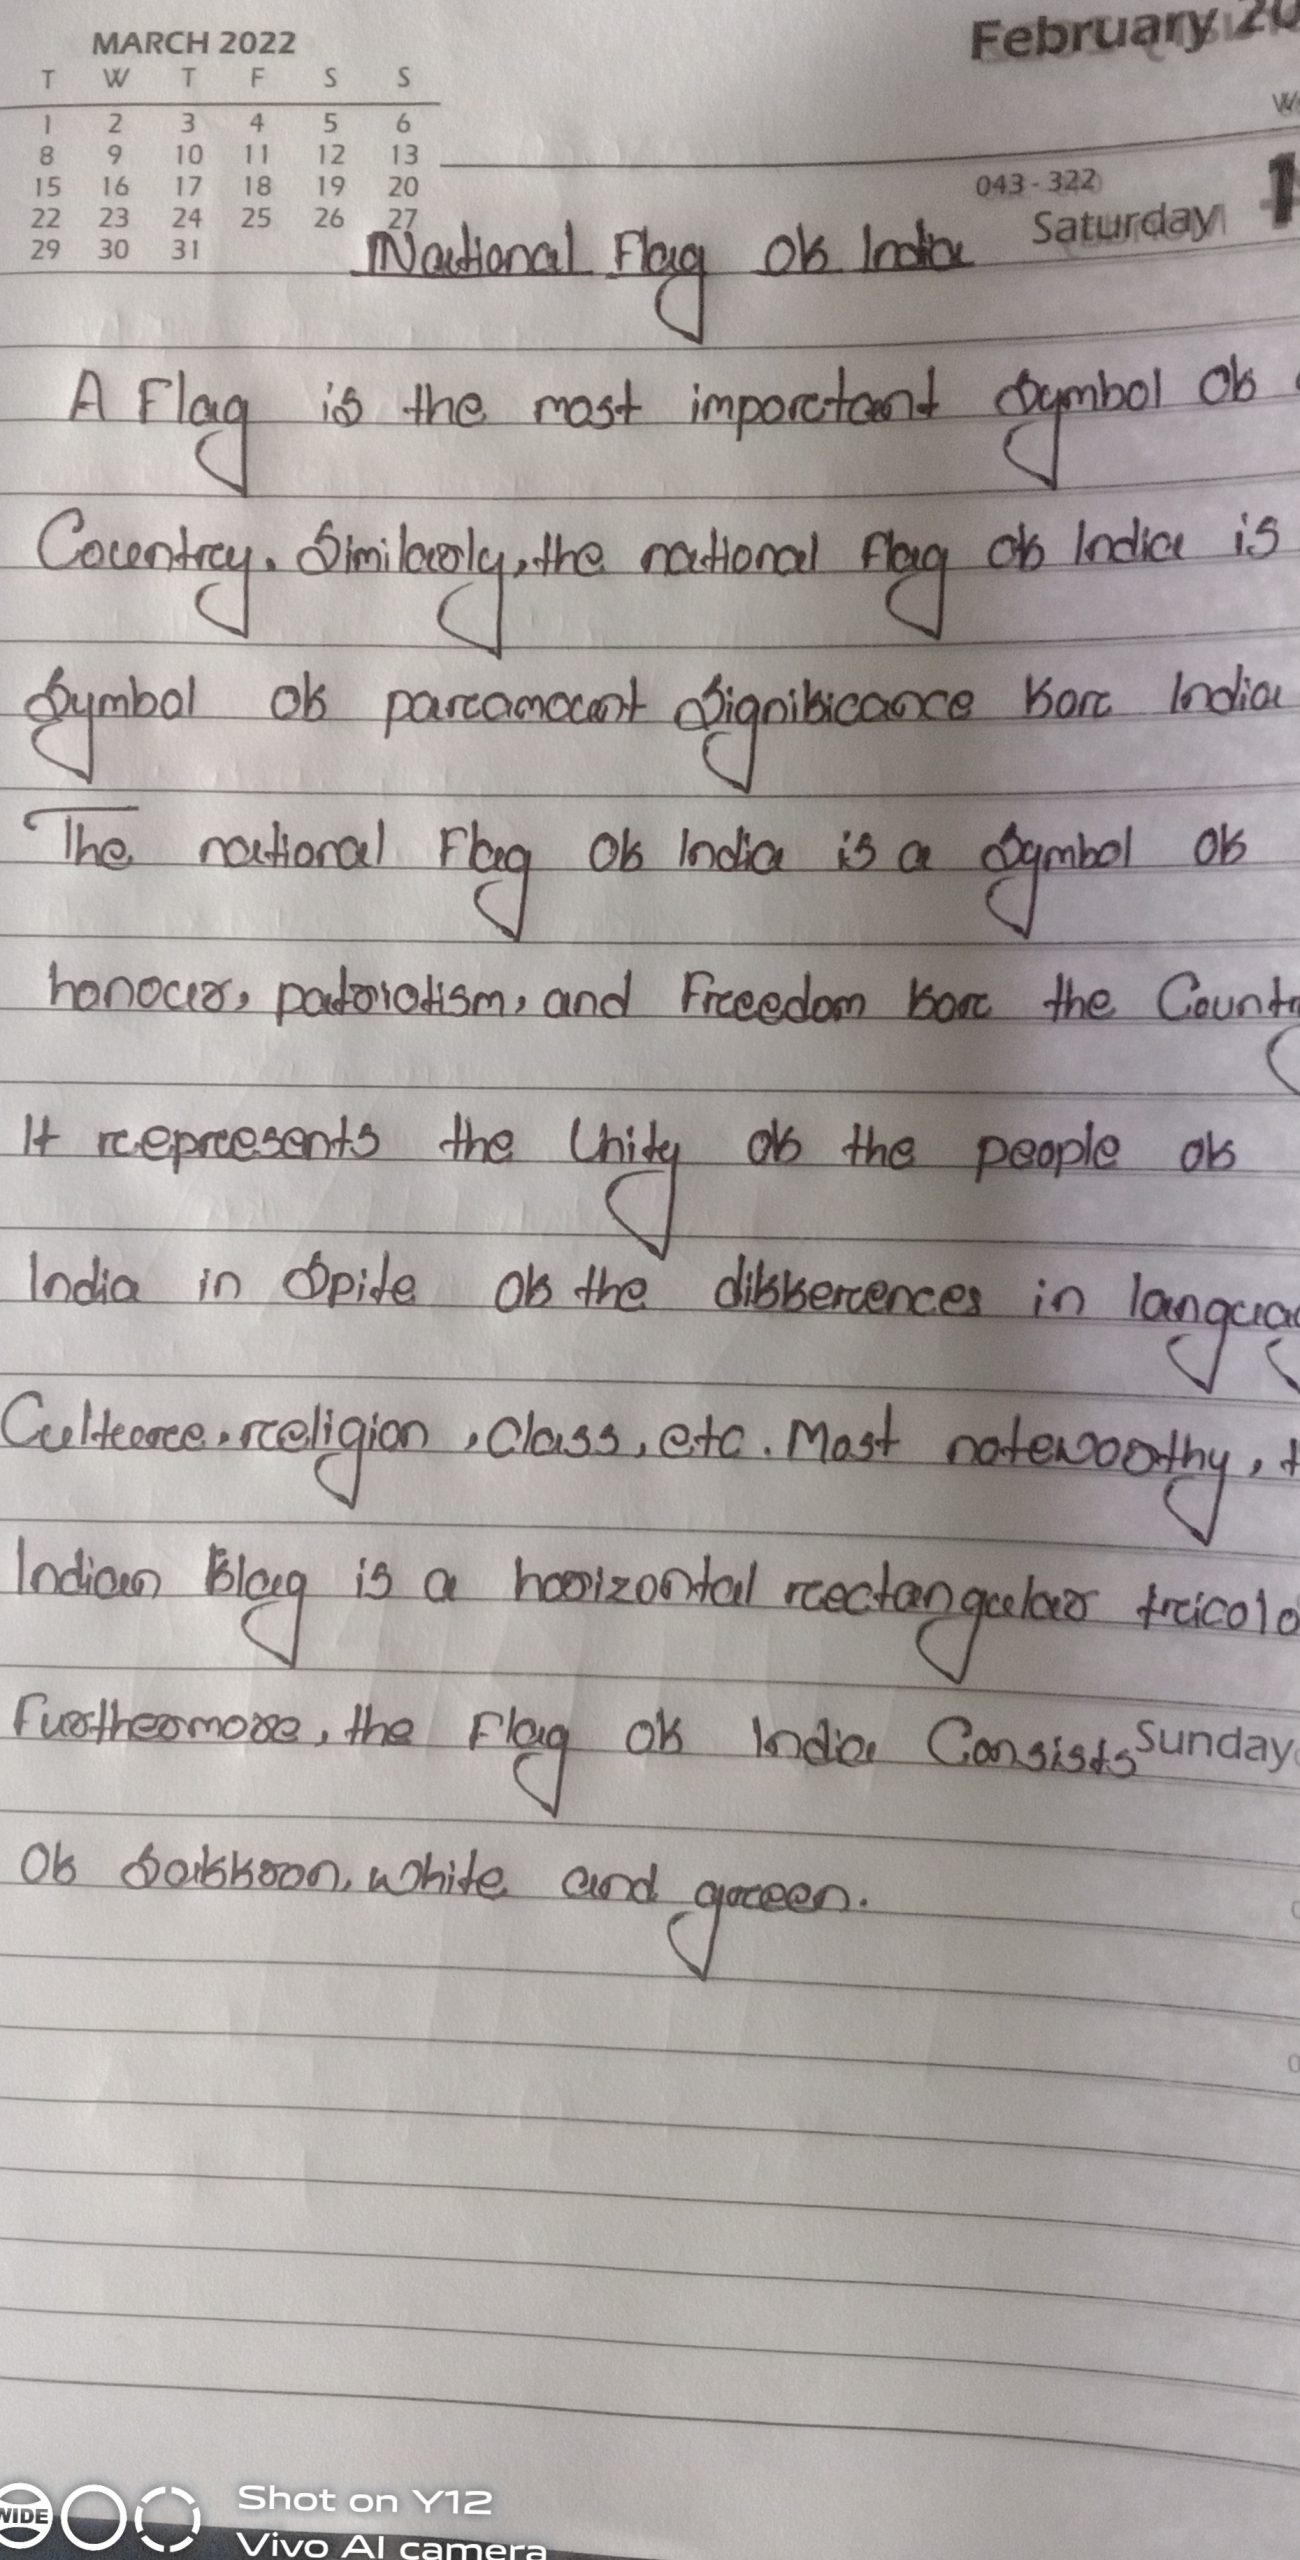 MARCH 2022
February 20
T W T F S S
1 2 3 4 5 6
8 9 10 11 12 13
15 16 17 18 19 20
22 23 24 25 26 27
29 30 31
043 - 322
Saturday 1
National Flag of India
A Flag is the most important Symbol of
Country. Similarly, the national flag of India is
Symbol of paramount Significance for India
The national Flag of India is a Symbol of
honour, patriotism, and Freedom for the Countr
It represents the Unity of the people of
India in Spite of the differences in langua
Culture, religion, Class, etc. Most noteworthy, t
Indian flag is a horizontal rectangular tricolo
Furthermore, the Flag of India Consists
Sunday
Of Saffron, white and green.
WIDE
Shot on Y12
Vivo AI camera